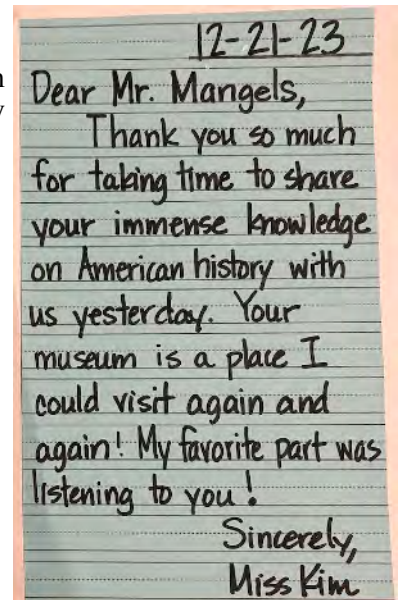 12-21-23
Dear Mr. Mangels,
Thank you so much
for taking time to share
your immense knowledge
on American history with
us yesterday. Your
museum is a place I
could visit again and
again! My favorite part was
listening to you!
Sincerely,
Miss Kim